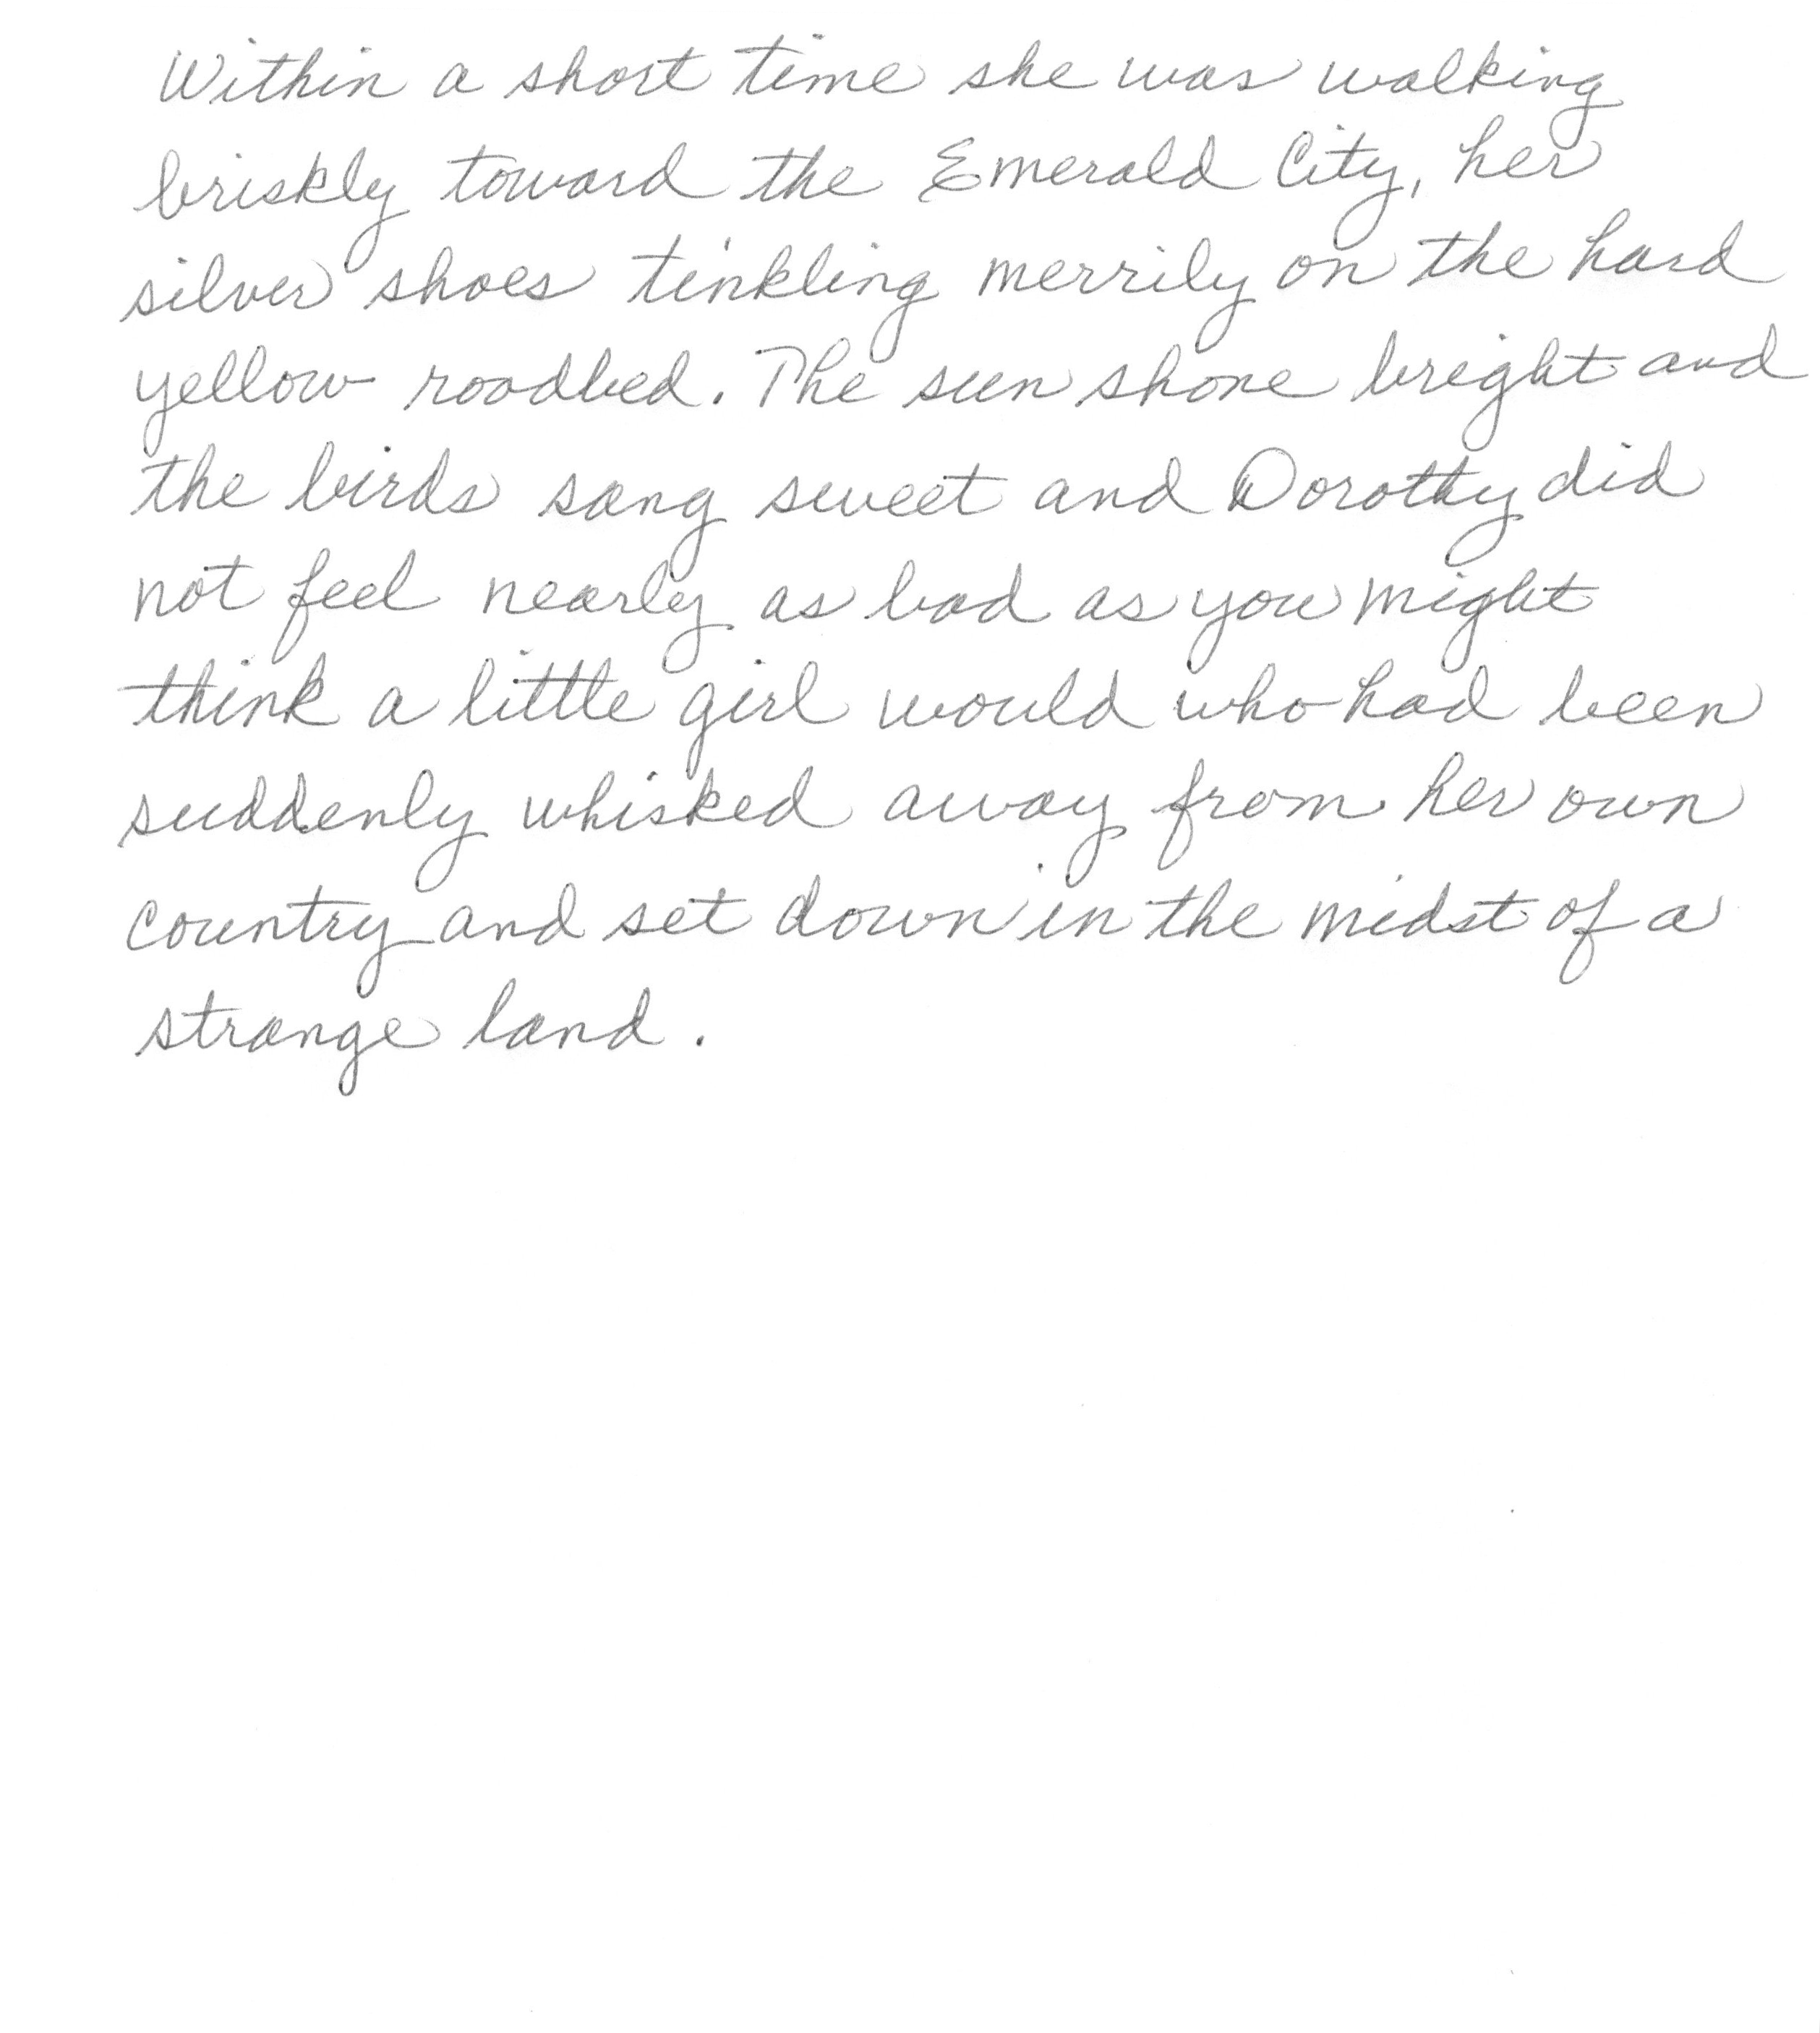 Within a short time she was walking
briskly toward the Emerald City, her
silver shoes tinkling merrily on the hard
yellow roadbed. The sun shone bright and
the birds sang sweet and Dorothy did
not feel nearly as bad as you might
think a little girl would who had been
suddenly whisked away from her own
country and set down in the midst of a
strange land.